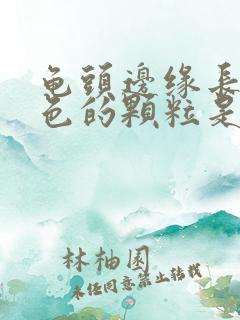 龟頭邊缘長
色的顆粒是
林柚园
未经同意禁止转载